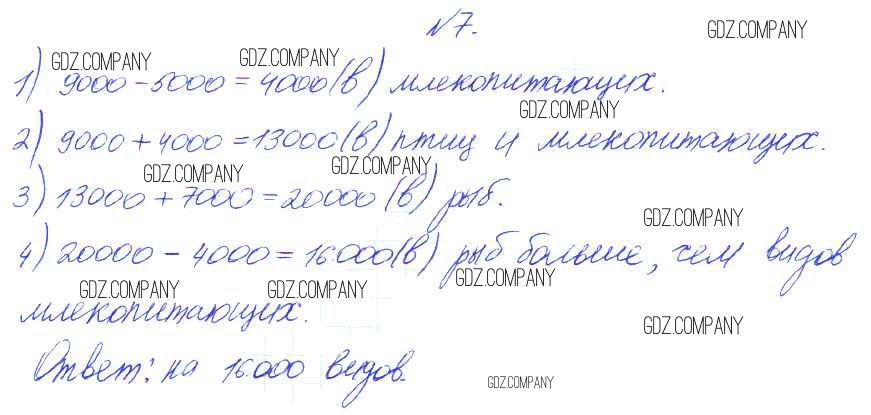 №7.
GDZ.COMPANY
GDZ.COMPANY GDZ.COMPANY
1) 9000 - 5000 = 4000 (в) млекопитающих.
GDZ.COMPANY
2) 9000 + 4000 = 13000 (в) птиц и млекопитающих.
GDZ.COMPANY GDZ.COMPANY
3) 13000 + 7000 = 20000 (в) рыб.
GDZ.COMPANY
4) 20000 - 4000 = 16000 (в) рыб больше, чем видов
GDZ.COMPANY GDZ.COMPANY GDZ.COMPANY
млекопитающих.
GDZ.COMPANY
Ответ: на 16000 видов.
GDZ.COMPANY